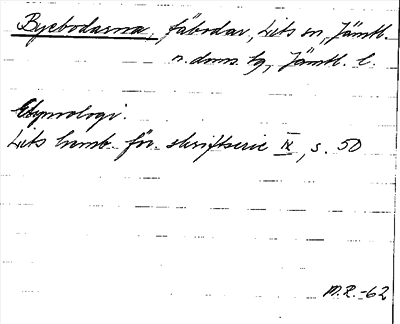 Byebodarna, fäbodar, Lits sn, Jämtl.
n. doms. tg, Jämtl. l.
Etymologi.
Lits hemb. för. skriftserie IX, s. 50
M.R. -62